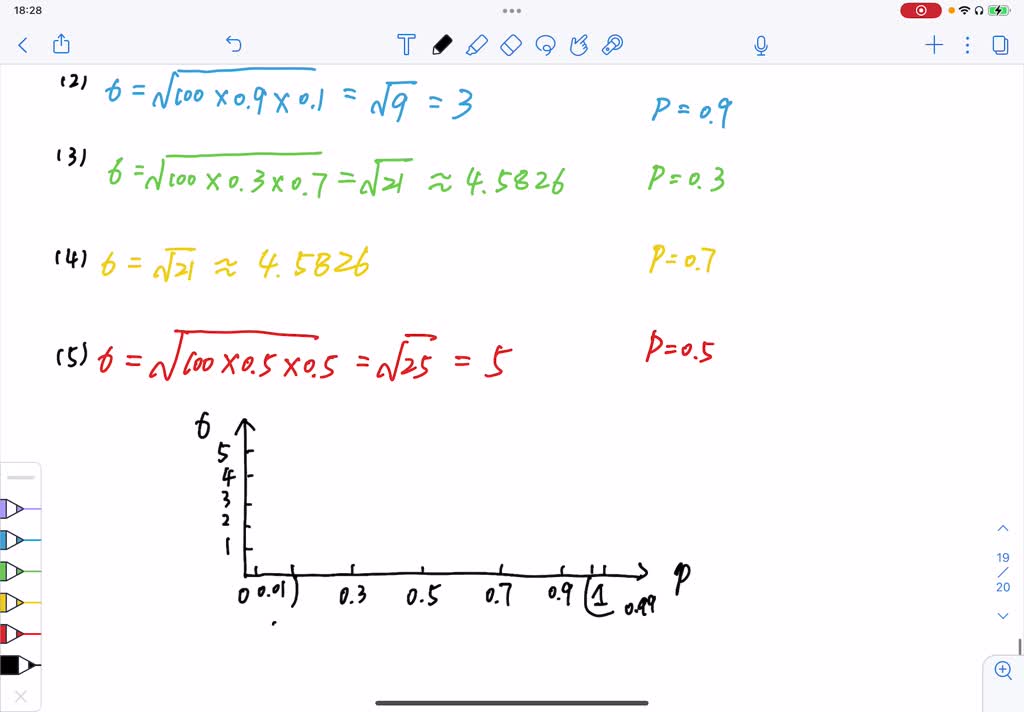 18:28
(2) σ = √100 × 0.9 × 0.1 = √9 = 3 P = 0.9
(3) σ = √100 × 0.3 × 0.7 = √21 ≈ 4.5826 P = 0.3
(4) σ = √21 ≈ 4.5826 P = 0.7
(5) σ = √100 × 0.5 × 0.5 = √25 = 5 P = 0.5
σ
5
4
3
2
1
0 0.01 0.3 0.5 0.7 0.9 1 0.99 P
19
/
20